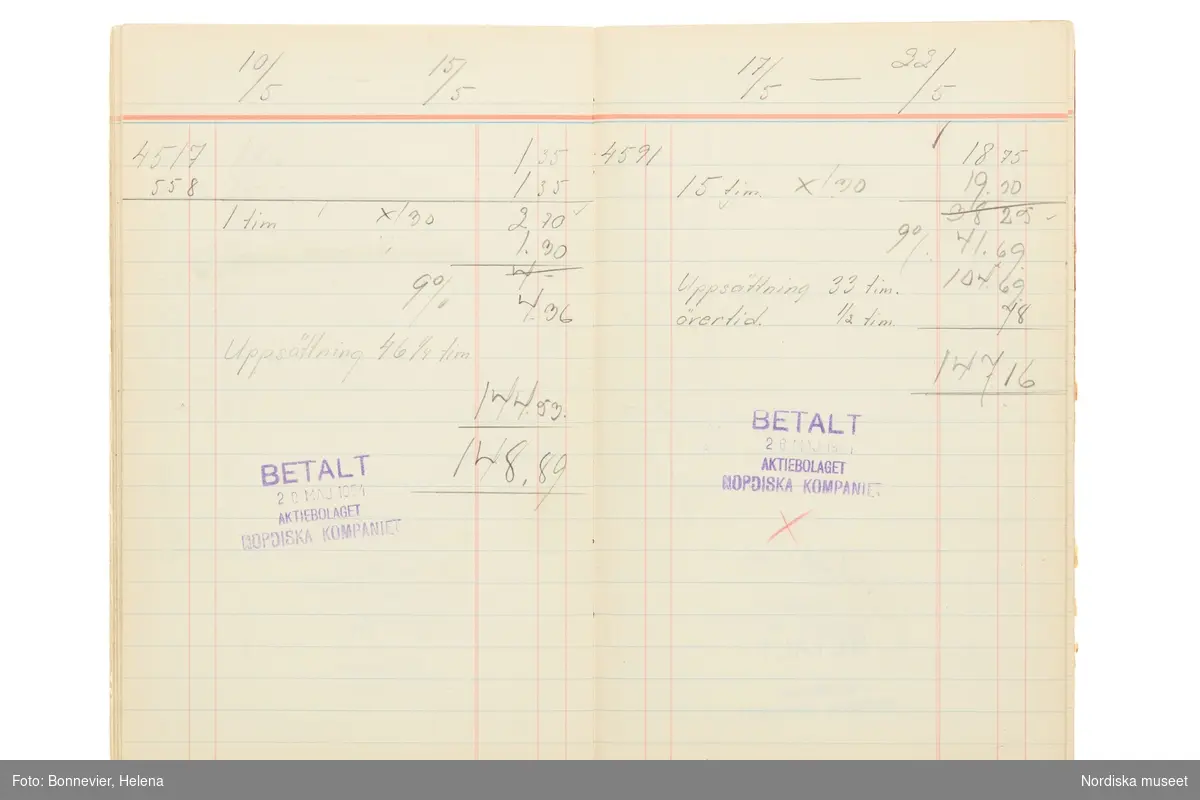 10/5 15/5
4517 1 35
558 1 35
1 tim x/30 2,70 ✓
1.30
4 -
9% 4.36
Uppsättning 46 1/4 tim
144.53.
148,89
BETALT
2 8 MAJ 1951
AKTIEBOLAGET
NORDISKA KOMPANIET
17/5 — 22/5
4591 18 75
15 tim. x/30 19.50
38 25 -
9%. 41.69
Uppsättning 33 tim. 104.69
övertid. 1/2 tim. 78
147,16
BETALT
2 8 MAJ 1951
AKTIEBOLAGET
NORDISKA KOMPANIET
Foto: Bonnevier, Helena
Nordiska museet